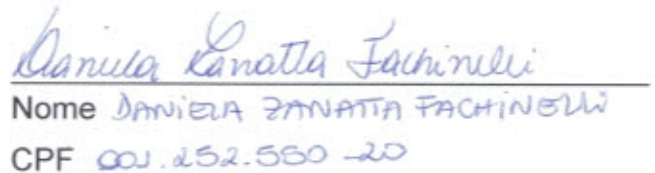 Daniela Zanatta Fachinelli
Nome DANIELA ZANATTA FACHINELLI
CPF 001.252.550-20